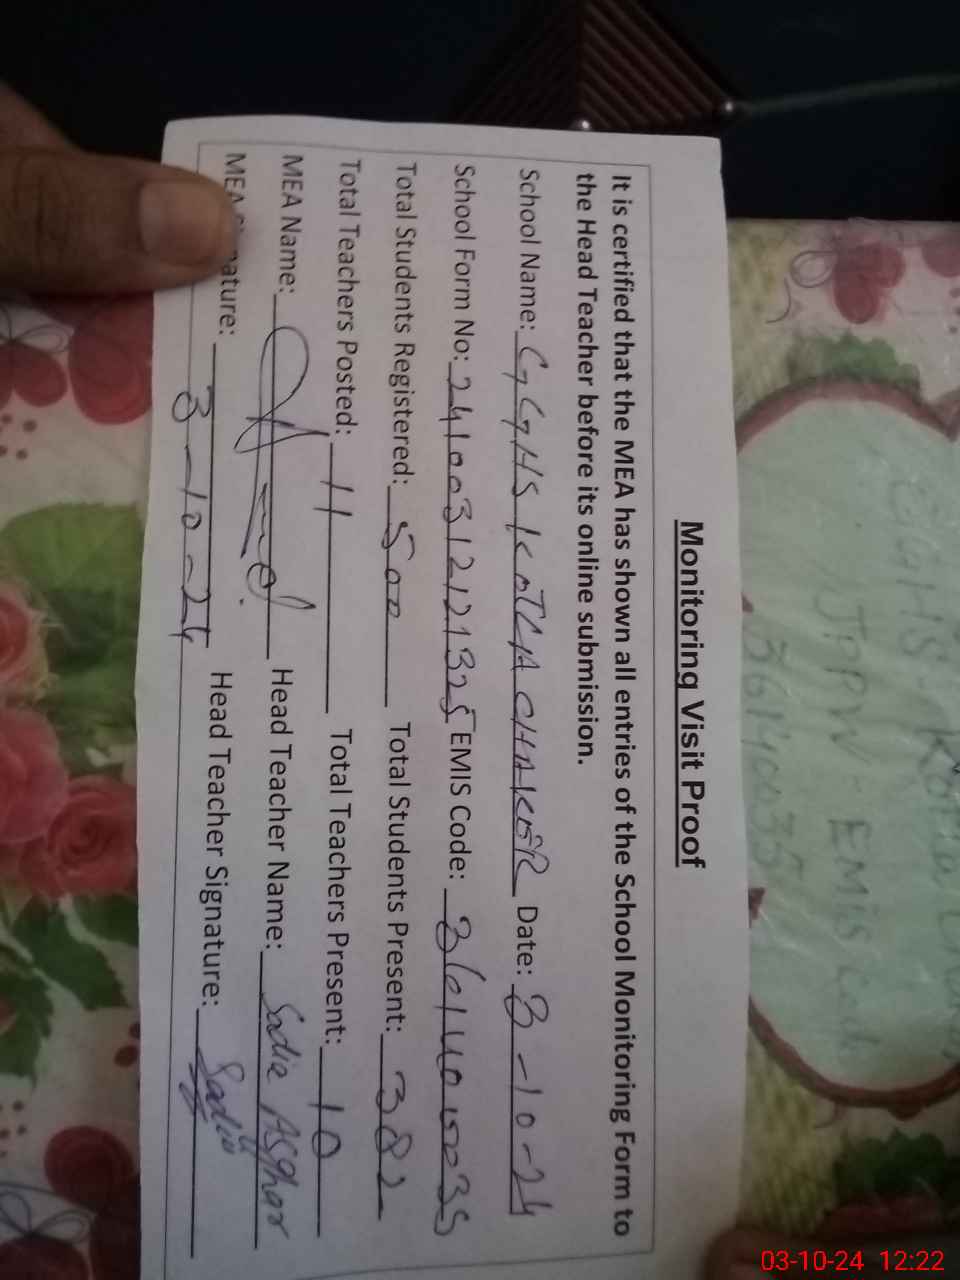 Monitoring Visit Proof
It is certified that the MEA has shown all entries of the School Monitoring Form to
the Head Teacher before its online submission.
School Name: GGHS KOTLA CHAKAR Date: 3-10-24
School Form No: EMIS Code:
Total Students Registered: 500 Total Students Present: 382
Total Teachers Posted: 11 Total Teachers Present: 10
MEA Name: Head Teacher Name: Sadia Asghar
ature: 3-10-24 Head Teacher Signature: Sadia
GGHS
EMIS
03-10-24 12:22